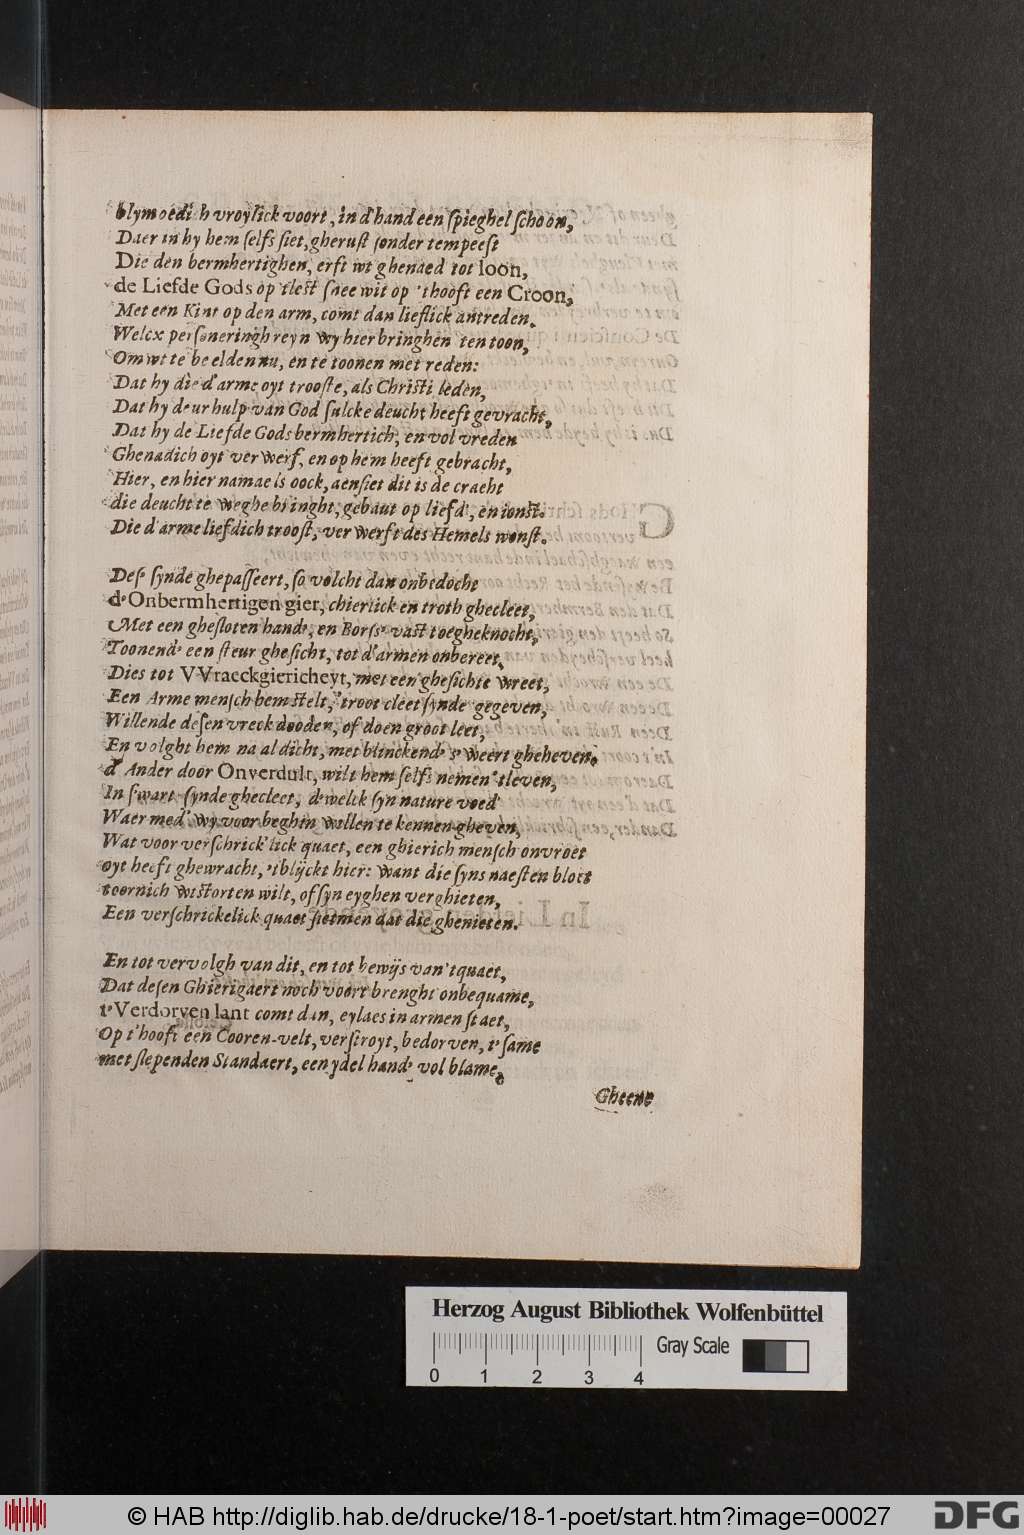 blymoedich vroylick voort, in d'hand een spieghel schoon,
Daer in hy hem selfs siet, gherust sonder tempeest
Die den bermhertighen, erft wt ghenaed tot loon,
de Liefde Gods op tlest snee wit op 'thooft een Croon,
Met een Kint op den arm, comt dan lieflick antreden.
Welcx personeringh reyn wy hier bringhen ten toon,
Om wt te beelden nu, en te toonen met reden:
Dat hy die d'arme oyt trooste, als Christi leden,
Dat hy deur hulp van God sulcke deucht heeft gevracht,
Dat hy de Liefde Gods bermhertich, en vol vreden
Ghenadich oyt verwerf, en op hem heeft gebracht,
Hier, en hier namaels oock, aensiet dit is de cracht
die deucht te weghe bringht, gebaut op liefd', en ionst.
Die d'arme liefdich troost, verwerft des Hemels wonst.
Des' synde ghepasseert, so volcht dan onbedocht
d'Onbermhertigen gier, chierlick en troth ghecleet,
Met een ghesloten hand', en Bors' vast toegheknocht,
Toonend' een steur ghesicht, tot d'armen onbereet.
Dies tot VVraeckgiericheyt, met een ghesichte wreet,
Een Arme mensch hem stelt, 'troot cleet synde gegeven,
Willende desen vreck dooden, of doen groot leet,
En volght hem na al dicht, met blinckend' s'weert gheheven.
d'Ander door Onverdult, wilt hem selfs nemen 'tleven,
In s'wart synde ghecleet, d'welck syn nature voed'
Waer med' wy voor beghin wollen te kennen gheven,
Wat voor verschrick'lick quaet, een ghierich mensch onvroet
oyt heeft ghewracht, 'tblijckt hier: want die syns naesten bloet
toornich wtstorten wilt, of syn eyghen verghieten,
Een verschrickelick quaet sietmen dat die ghenieten.
En tot vervolgh van dit, en tot bewijs van 'tquaet,
Dat desen Ghierigaert noch voort brenght onbequame,
t'Verdorven lant comt dan, eylaes in armen staet,
Op t'hooft een Cooren-velt, verstroyt, bedorven, t'same
met slependen Standaert, een ydel hand' vol blame,
Gheene
Herzog August Bibliothek Wolfenbüttel
Gray Scale
0 1 2 3 4
© HAB http://diglib.hab.de/drucke/18-1-poet/start.htm?image=00027
DFG